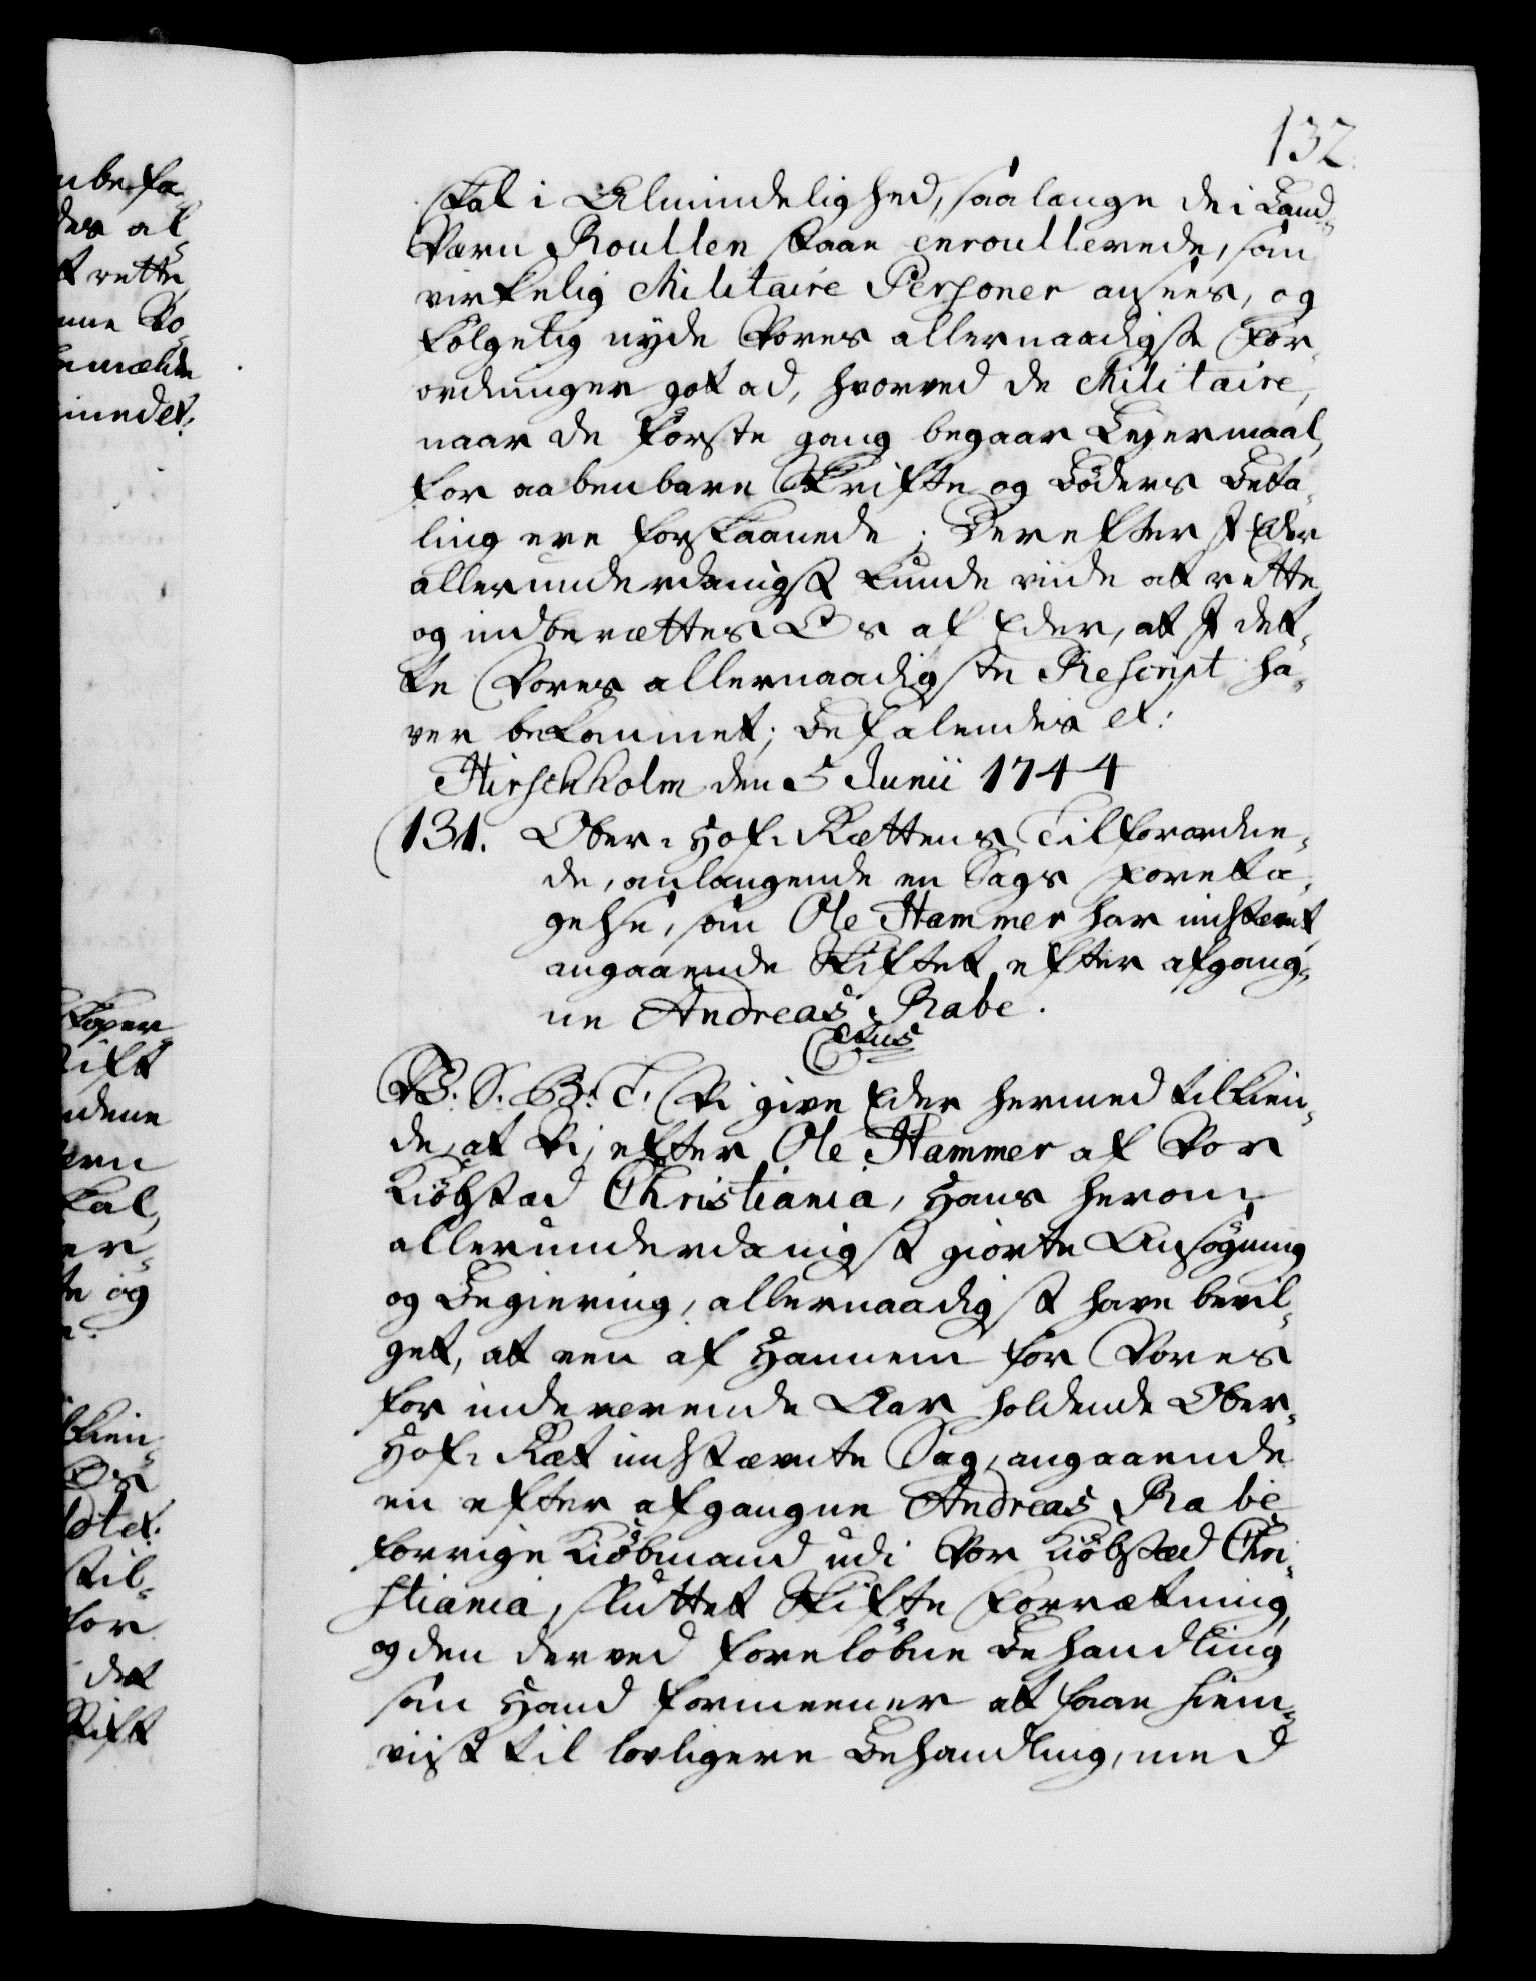 132.
skal i Almindelighed, saalænge de i Land-
Værn Roullen staae enroullerede, som
virkelig Militaire Personer ansees, og
følgelig nyde Vores allernaadigste For-
ordninger got ad, hvorved de Militaire,
naar de første gang begaar Leyermaal,
for aabenbare Skrifte og Bøders Beta-
ling ere forskaanede; Derefter I Eder
allerunderdanigst kunde vide at rette,
og indberættes Os af Eder, at I det-
te Vores allernaadigste Rescript ha-
ver bekommet; Befalendes et:
Hirschholm den 5 Junii 1744
131. Ober-Hof-Rættens Tilforordne-
de, anlangende en Sags foreta-
gelse, som Ole Hammer har indstævnt,
angaaende Skiftet efter afgang-
ne Andreas Rabe.
V. S. G. T. Vi give Eder hermed tilkien-
de, at Vi, efter Ole Hammer af Vor
Kiøbstad Christiania, Hans herom
allerunderdanigst giorte Ansøgning
og Begiering, allernaadigst have bevil-
get, at een af Hannem for Vores
for indeværende Aar holdende Ober-
Hof-Ræt indstævnte Sag, angaaende
en efter afgangne Andreas Rabe
forrige Kiøbmand udi Vor Kiøbstad Chri-
stiania, sluttet Skifte Forrætning,
og den derved foreløbne Behandling
som Hand formeener at faae hiem-
vist til lovligere Behandling, med
nbefa-
des at
t rette
nne Vo-
emælte
inedet.
Kiøber
Stift
ndene
ærn
kal,
er-
te og
lkien-
Os
ldtet.
til-
for
det
Stift